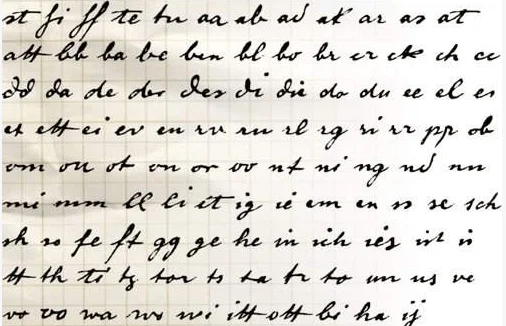 st fi ff te tu aa ab ad ak ar as at
att bb ba be ben bl bo br er ck ch cc
dd da de der des di die do du ee el es
et ett ei ev en rv ru rl rg ri rr pp ob
om ou ot on or oo nt ni ng nd nn
mi mm ll li it ig ie em en ss se sch
sh so fe ft gg ge he in ich ies ist is
tt th ti tz tor ts ta tr to un us ve
vo vo wa wo wi itt ott bi ha ij